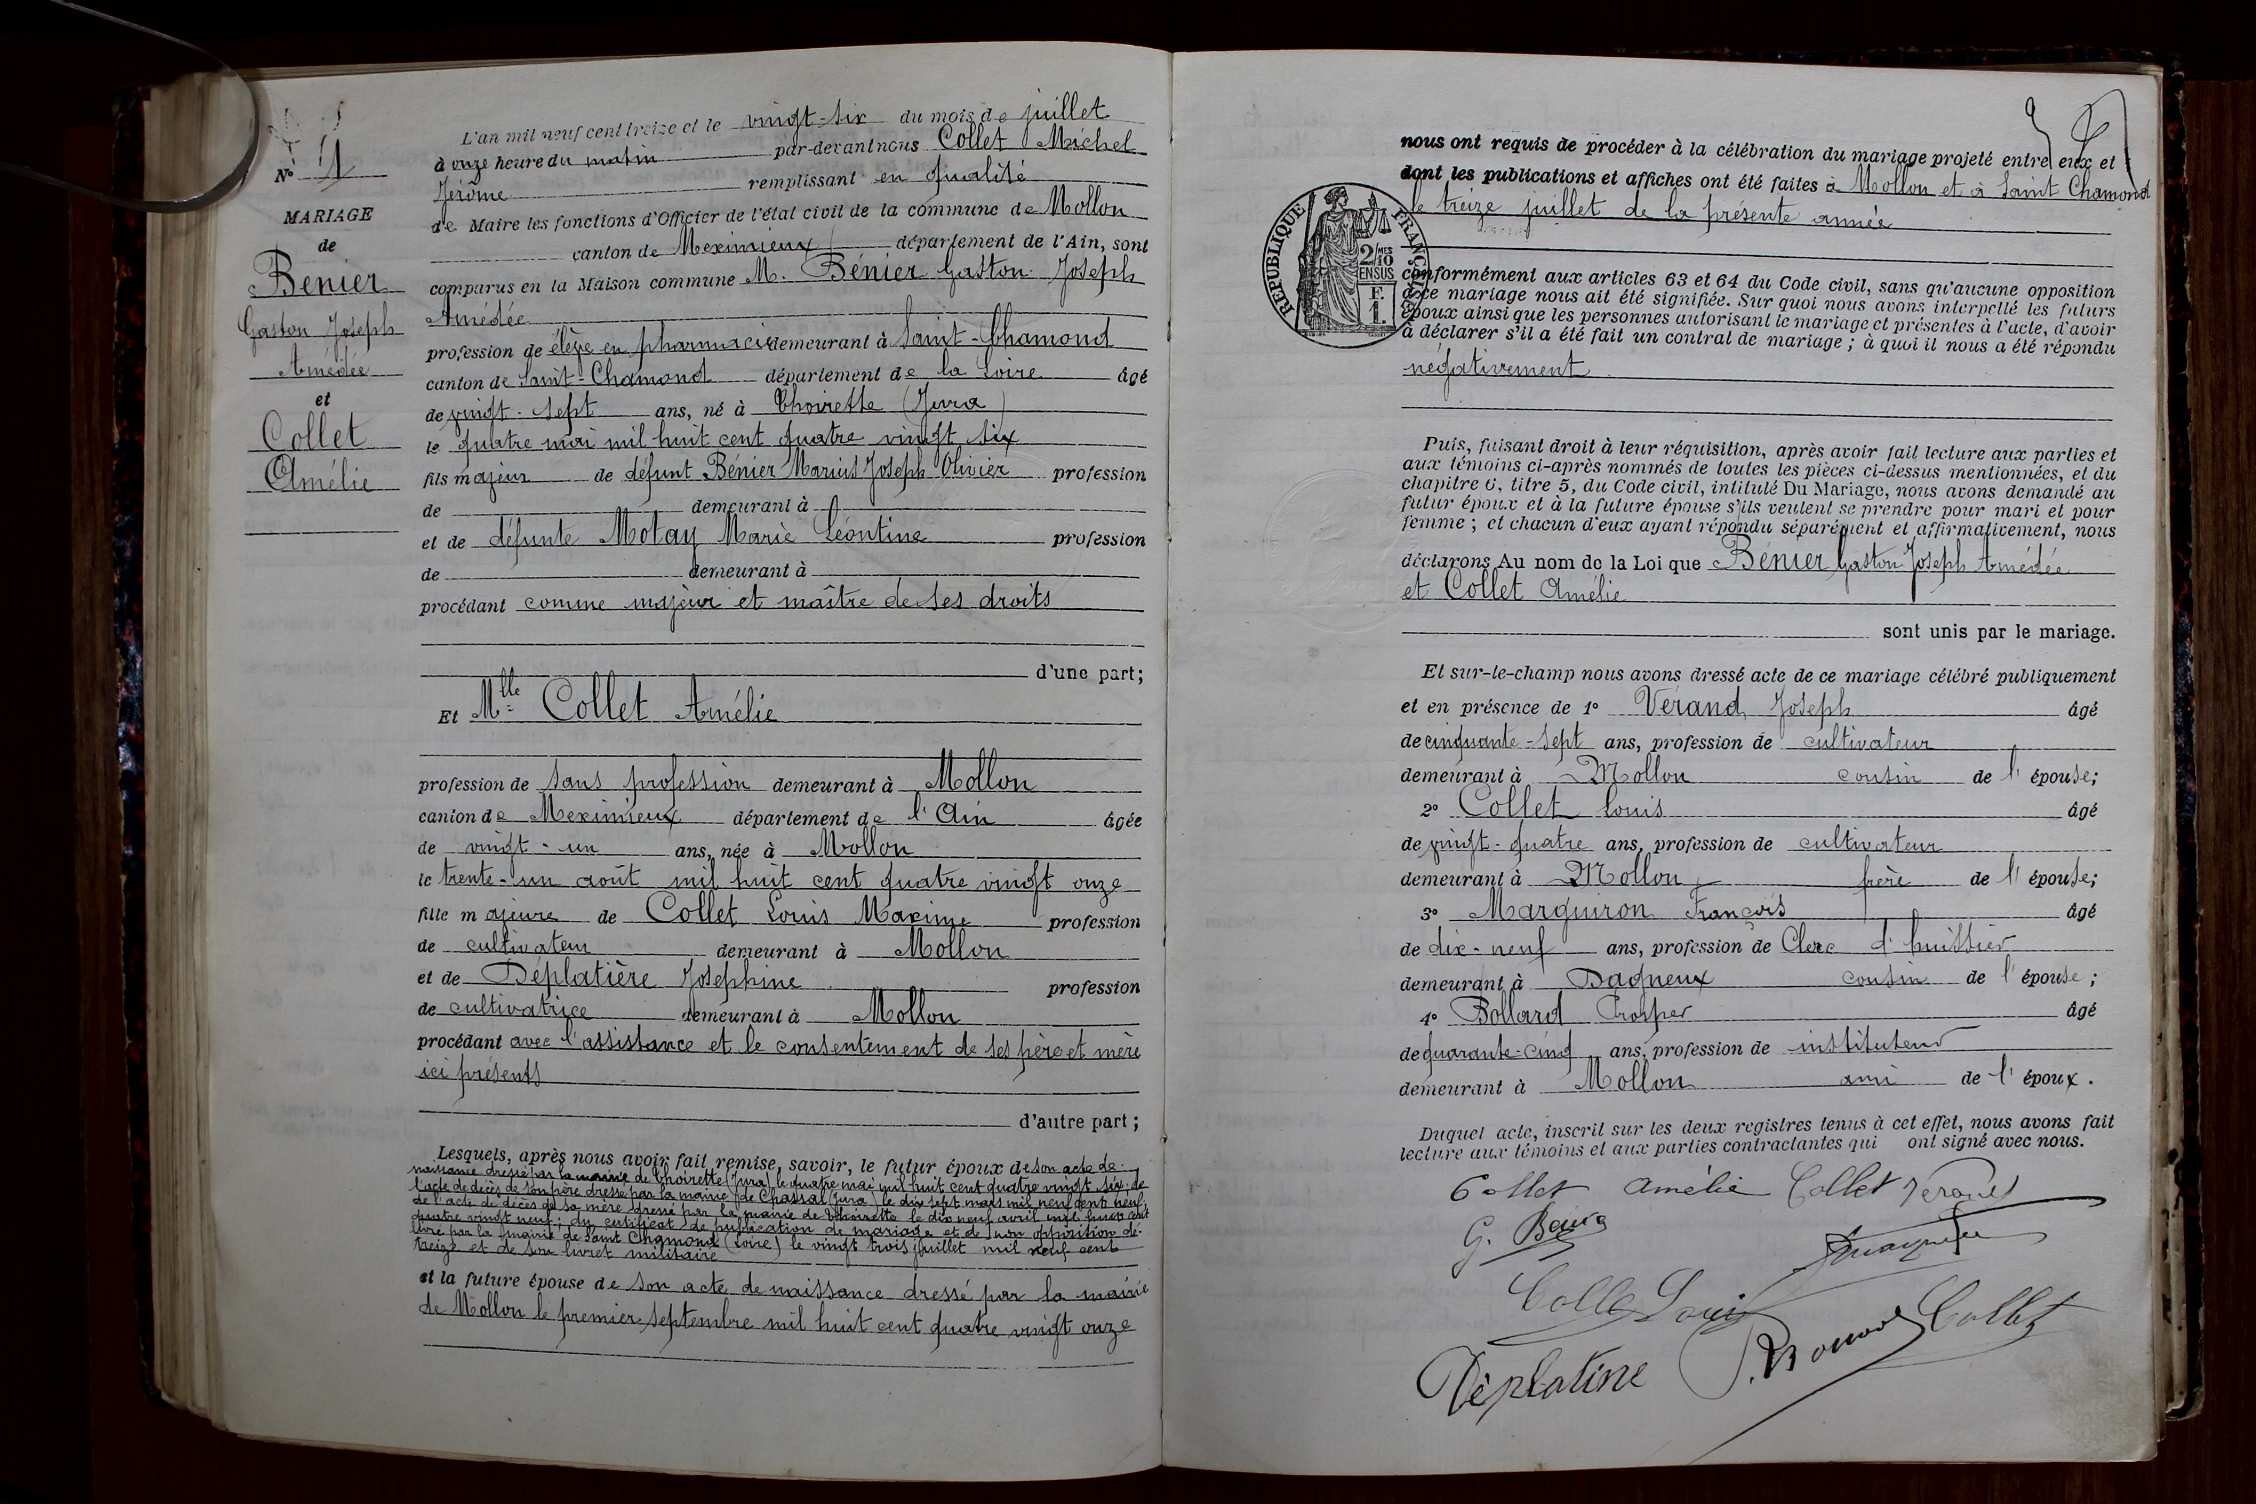 L'an mil neuf cent treize et le vingt-six du mois de juillet
à onze heure du matin par-devant nous Collet Michel
Jérôme remplissant en qualité
de Maire les fonctions d'Officier de l'état civil de la commune de Mollon
canton de Meximieux département de l'Ain, sont
comparus en la Maison commune M. Bénier Gaston Joseph
Amédée
profession de élève en pharmacie demeurant à Saint-Chamond
canton de Saint-Chamond département de la Loire âgé
de vingt-sept ans, né à Thoirette (Jura)
le quatre mai mil huit cent quatre vingt six
fils majeur de défunt Bénier Marius Joseph Olivier profession
de demeurant à
et de défunte Motay Marie Léontine profession
de demeurant à
procédant comme majeur et maître de ses droits
d'une part;
Et Mlle Collet Amélie
profession de sans profession demeurant à Mollon
canton de Meximieux département de l'Ain âgée
de vingt-un ans, née à Mollon
le trente-un août mil huit cent quatre vingt onze
fille majeure de Collet Louis Maxime profession
de cultivateur demeurant à Mollon
et de Déplatière Joséphine profession
de cultivatrice demeurant à Mollon
procédant avec l'assistance et le consentement de ses père et mère
ici présents
d'autre part;
Lesquels, après nous avoir fait remise, savoir, le futur époux de son acte de
naissance dressé par la mairie de Thoirette (Jura) le quatre mai mil huit cent quatre vingt six; de
l'acte de décès de son père dressé par la mairie de Chassal (Jura) le dix sept mars mil neuf cent neuf;
de l'acte de décès de sa mère dressé par la mairie de Thoirette le dix neuf avril mil huit cent
quatre vingt neuf; du certificat de publication de mariage et de non opposition dé-
livré par la mairie de Saint Chamond (Loire) le vingt trois juillet mil neuf cent
treize et de son livret militaire
et la future épouse de son acte de naissance dressé par la mairie
de Mollon le premier septembre mil huit cent quatre vingt onze
N°
MARIAGE
de
Bénier
Gaston Joseph
Amédée
et
Collet
Amélie
nous ont requis de procéder à la célébration du mariage projeté entre eux et
dont les publications et affiches ont été faites à Mollon et à Saint Chamond
le treize juillet de la présente année
RÉPUBLIQUE FRANÇAISE
2/10
EN SUS
F.
1.
conformément aux articles 63 et 64 du Code civil, sans qu'aucune opposition
à ce mariage nous ait été signifiée. Sur quoi nous avons interpellé les futurs
époux ainsi que les personnes autorisant le mariage et présentes à l'acte, d'avoir
à déclarer s'il a été fait un contrat de mariage; à quoi il nous a été répondu
négativement
Puis, faisant droit à leur réquisition, après avoir fait lecture aux parties et
aux témoins ci-après nommés de toutes les pièces ci-dessus mentionnées, et du
chapitre 6, titre 5, du Code civil, intitulé Du Mariage, nous avons demandé au
futur époux et à la future épouse s'ils veulent se prendre pour mari et pour
femme; et chacun d'eux ayant répondu séparément et affirmativement, nous
déclarons Au nom de la Loi que Bénier Gaston Joseph Amédée
et Collet Amélie
sont unis par le mariage.
Et sur-le-champ nous avons dressé acte de ce mariage célébré publiquement
et en présence de 1° Vérand Joseph âgé
de cinquante-sept ans, profession de cultivateur
demeurant à Mollon cousin de l'épouse;
2° Collet Louis âgé
de vingt-quatre ans, profession de cultivateur
demeurant à Mollon frère de l'épouse;
3° Marguiron François âgé
de dix-neuf ans, profession de Clerc d'huissier
demeurant à Dagneux cousin de l'épouse;
4° Bollard Prosper âgé
de quarante-cinq ans, profession de instituteur
demeurant à Mollon ami de l'époux.
Duquel acte, inscrit sur les deux registres tenus à cet effet, nous avons fait
lecture aux témoins et aux parties contractantes qui ont signé avec nous.
Collet Amélie Collet Vérand
G.
Collet Louis
Collet